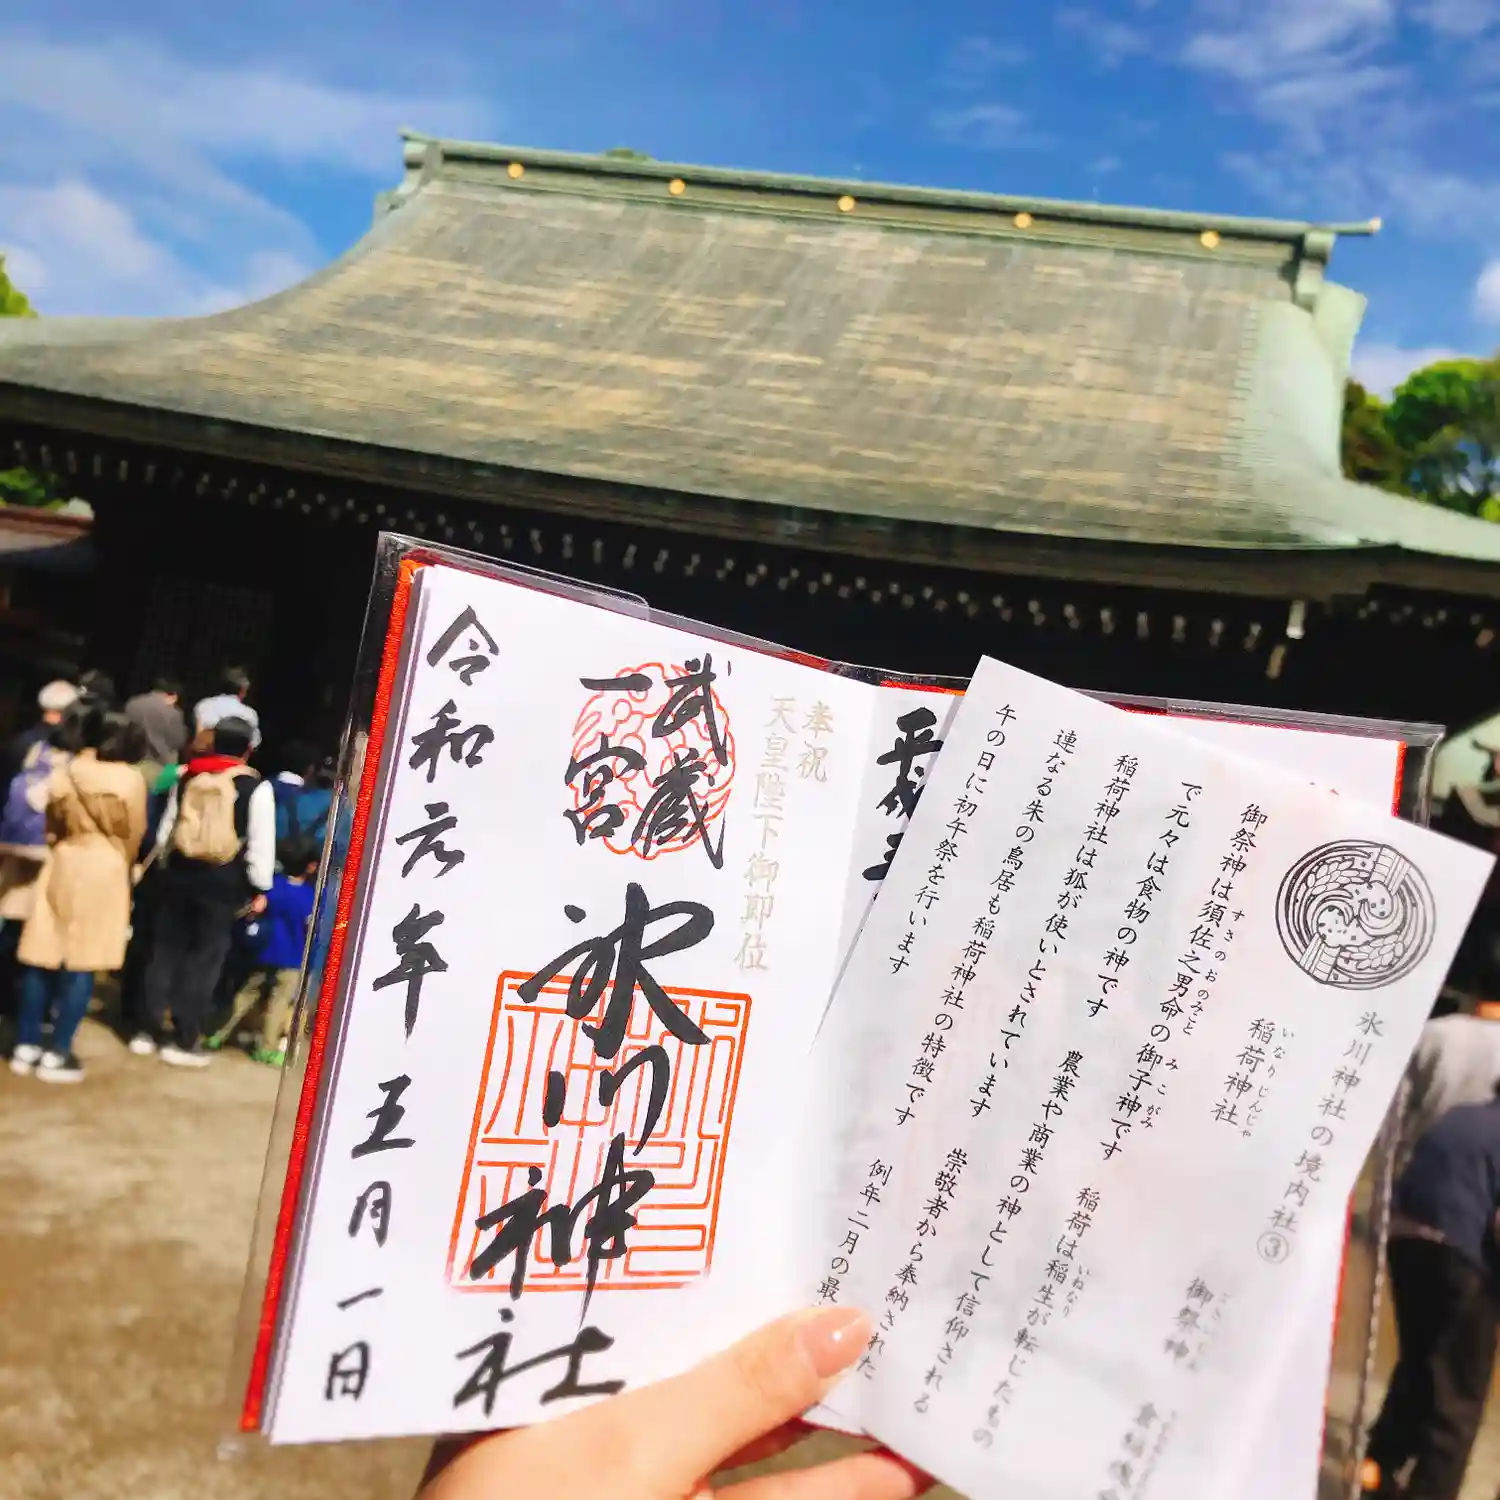 奉祝
天皇陛下御即位
武蔵
一宮
氷川神社
令和元年五月一日
平成三
氷川神社の境内社③
稲荷神社
いなりじんじゃ
御祭神
御祭神は須佐之男命の御子神です
すさのおのみこと
みこがみ
で元々は食物の神です 稲荷は稲生が転じたもの
いねなり
稲荷神社は狐が使いとされています 農業や商業の神として信仰される
連なる朱の鳥居も稲荷神社の特徴です 崇敬者から奉納された
午の日に初午祭を行います 例年二月の最